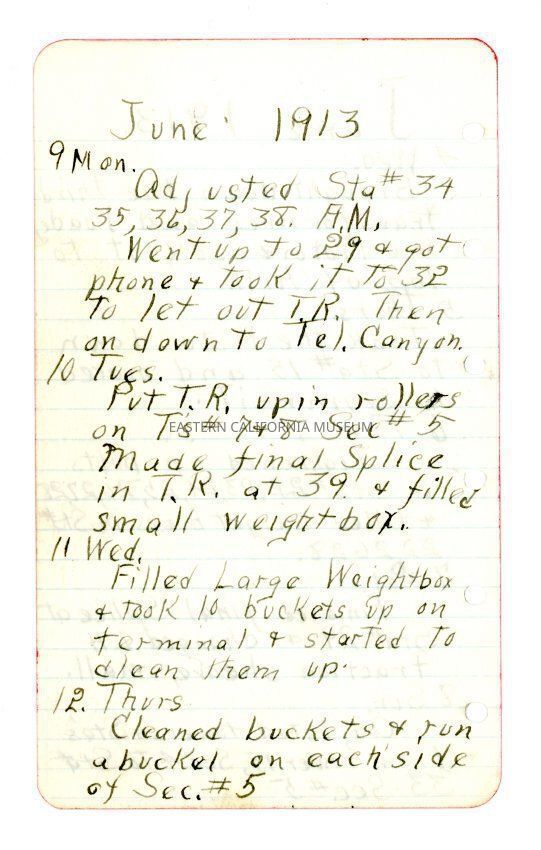 June 1913
9 Mon.
Adjusted Sta# 34
35, 36, 37, 38. A.M.
Went up to 29 & got
phone & took it to 32
to let out T.R. Then
on down to Tel. Canyon.
10 Tues.
Put T.R. up in rollers
on T's # 7 & 8 Sec # 5
EASTERN CALIFORNIA MUSEUM
Made final Splice
in T.R. at 39. & filled
small weightbox.
11 Wed.
Filled Large Weightbox
& took 10 buckets up on
terminal & started to
clean them up.
12. Thurs
Cleaned buckets & run
a bucket on each side
of Sec. # 5